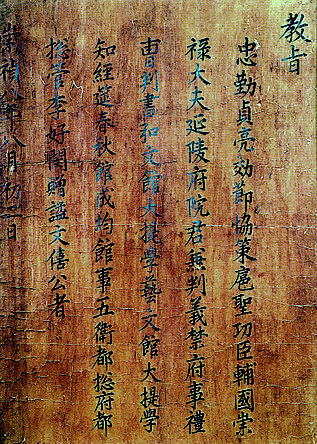 教旨
忠勤貞亮効節協策扈聖功臣輔國崇
祿大夫延陵府院君兼判義禁府事禮
曹判書知文館大提學藝文館大提學
知經筵春秋館成均館事五衛都摠府都
摠管李好閔贈諡文僖公者
崇禎八年八月初一日